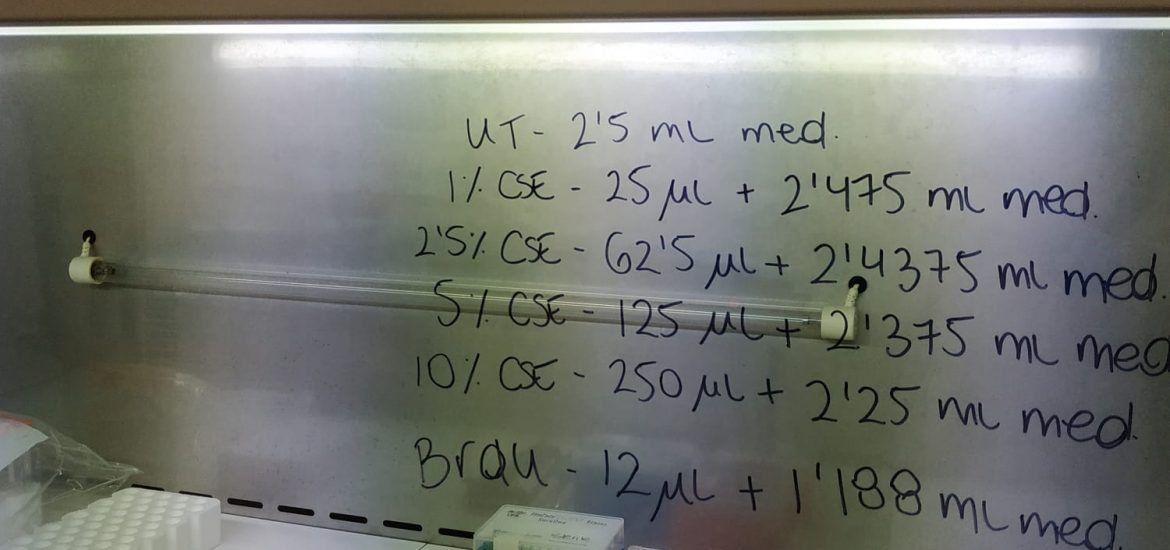 UT - 2'5 ml med.
1% CSE - 25 µl + 2'475 ml med.
2'5% CSE - 62'5 µl + 2'4375 ml med.
5% CSE - 125 µl + 2'375 ml med
10% CSE - 250 µl + 2'25 ml med.
BrdU - 12 µl + 1'188 ml med.